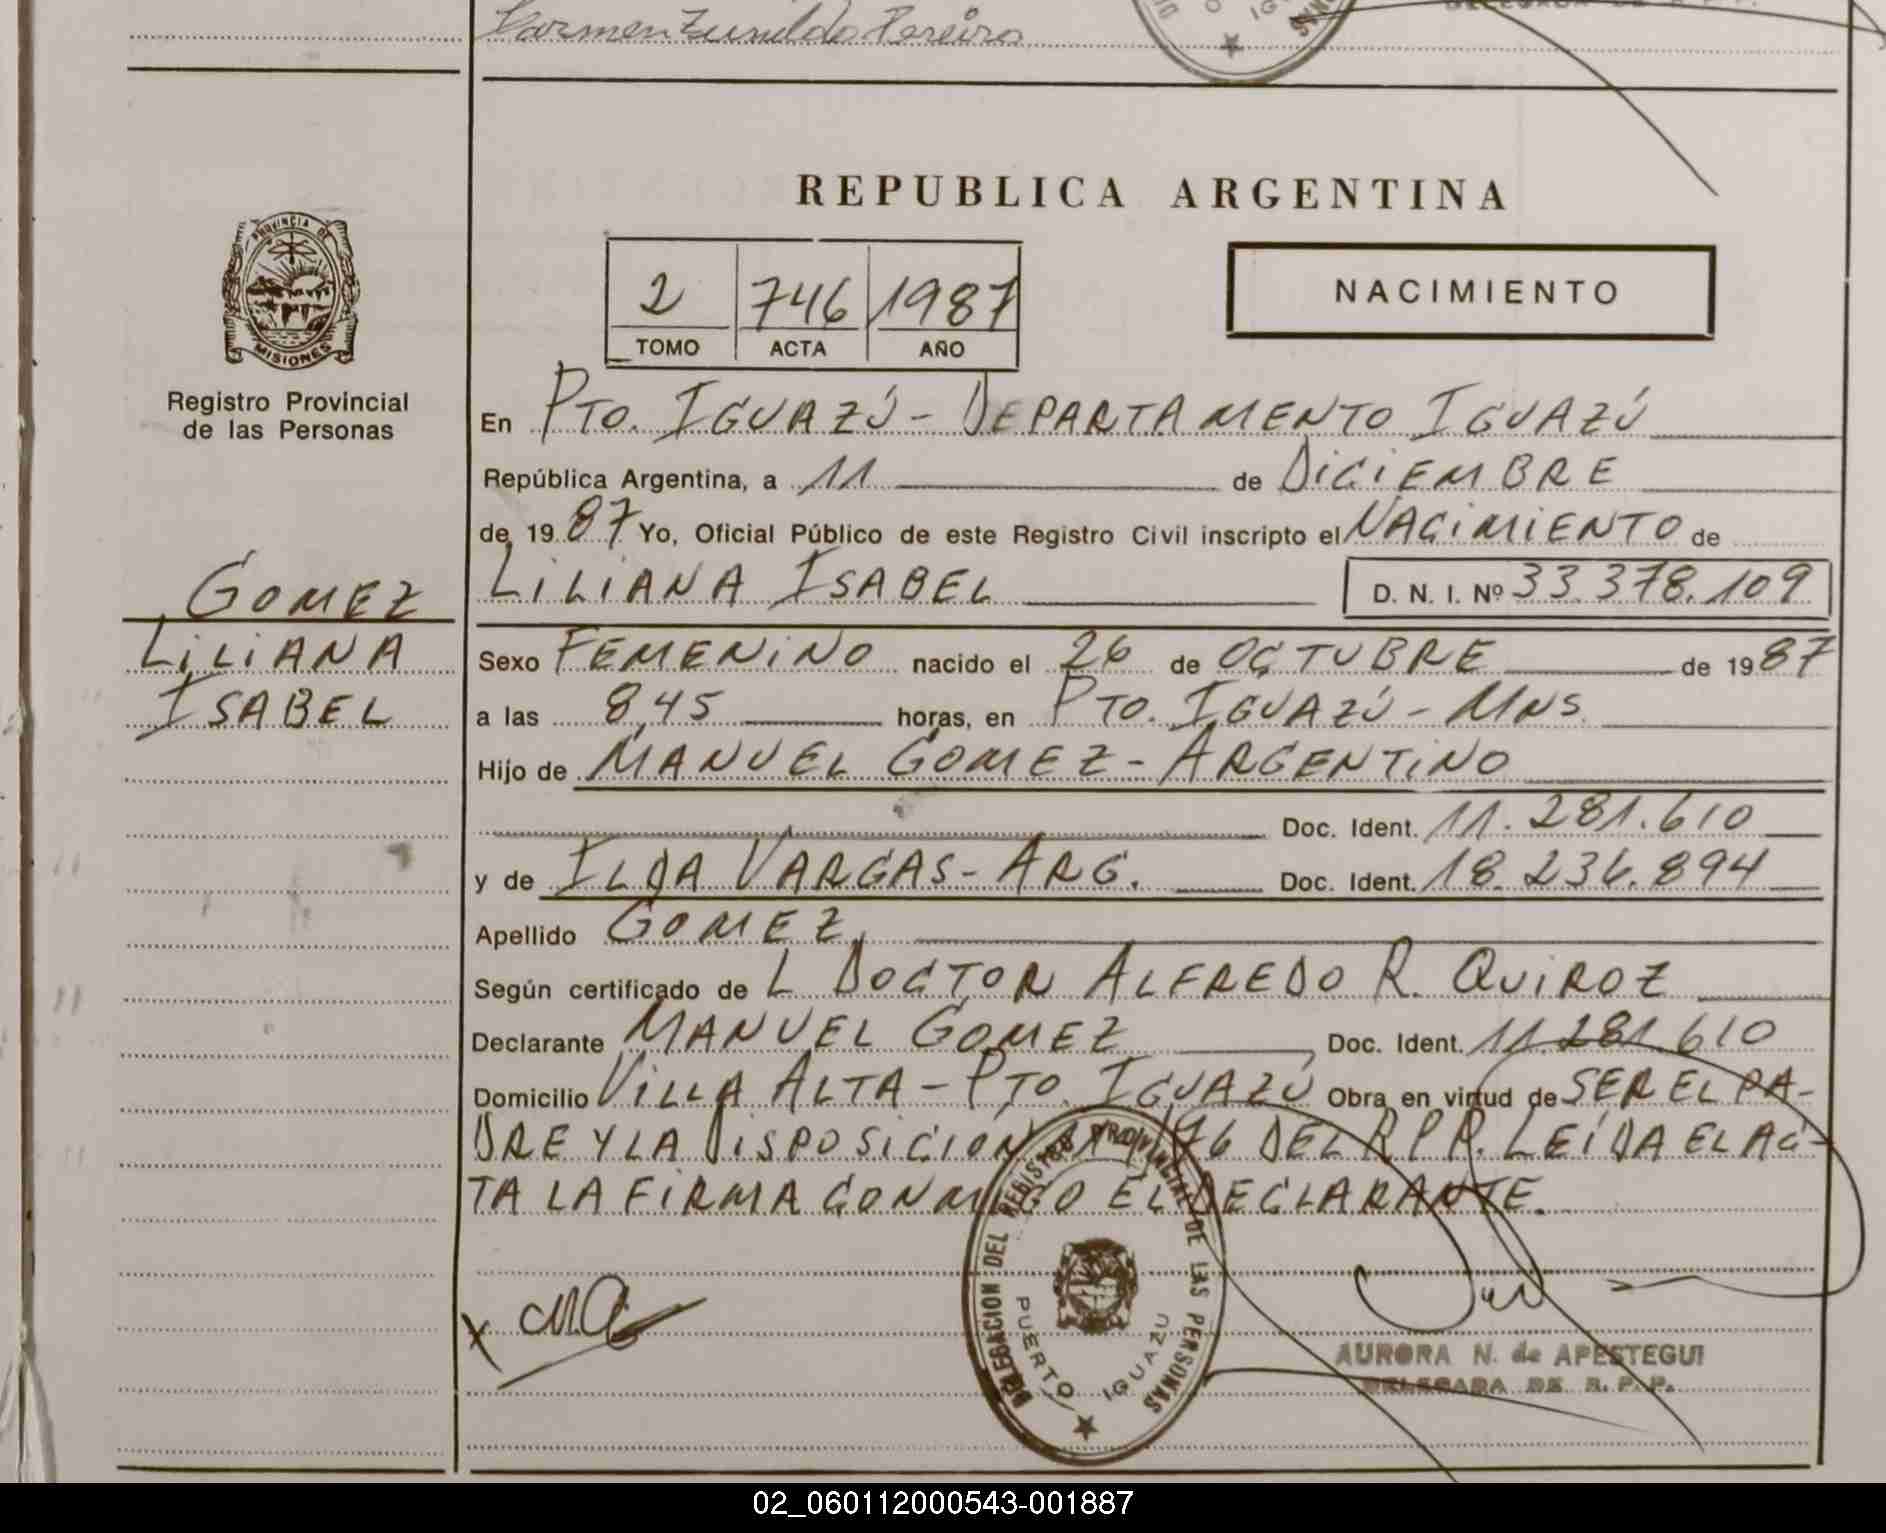 Carmen Zunilda Pereira
REPUBLICA ARGENTINA
PROVINCIA DE
MISIONES
Registro Provincial
de las Personas
2 746 1987
TOMO ACTA AÑO
NACIMIENTO
En PTO. IGUAZÚ - DEPARTAMENTO IGUAZÚ
República Argentina, a 11 de DICIEMBRE
de 1987 Yo, Oficial Público de este Registro Civil inscripto el NACIMIENTO de
GOMEZ
LILIANA
ISABEL
LILIANA ISABEL D. N. I. Nº 33.378.109
Sexo FEMENINO nacido el 26 de OCTUBRE de 1987
a las 8,45 horas, en PTO. IGUAZÚ - MNS.
Hijo de MANUEL GOMEZ - ARGENTINO
Doc. Ident. 11.281.610
y de ILDA VARGAS - ARG. Doc. Ident. 18.236.894
Apellido GOMEZ
Según certificado de L DOCTOR ALFREDO R. QUIROZ
Declarante MANUEL GOMEZ Doc. Ident. 11.281.610
Domicilio VILLA ALTA - PTO. IGUAZÚ Obra en virtud de SER EL PA-
DRE Y LA DISPOSICION 76 DEL R.P.P. LEÍDA EL AC-
TA LA FIRMA CONMIGO EL DECLARANTE.
x MG
DELEGACION DEL REGISTRO PROVINCIAL DE LAS PERSONAS
PUERTO IGUAZU
AURORA N. de APESTEGUI
DELEGADA DE R. P. P.
02_060112000543-001887